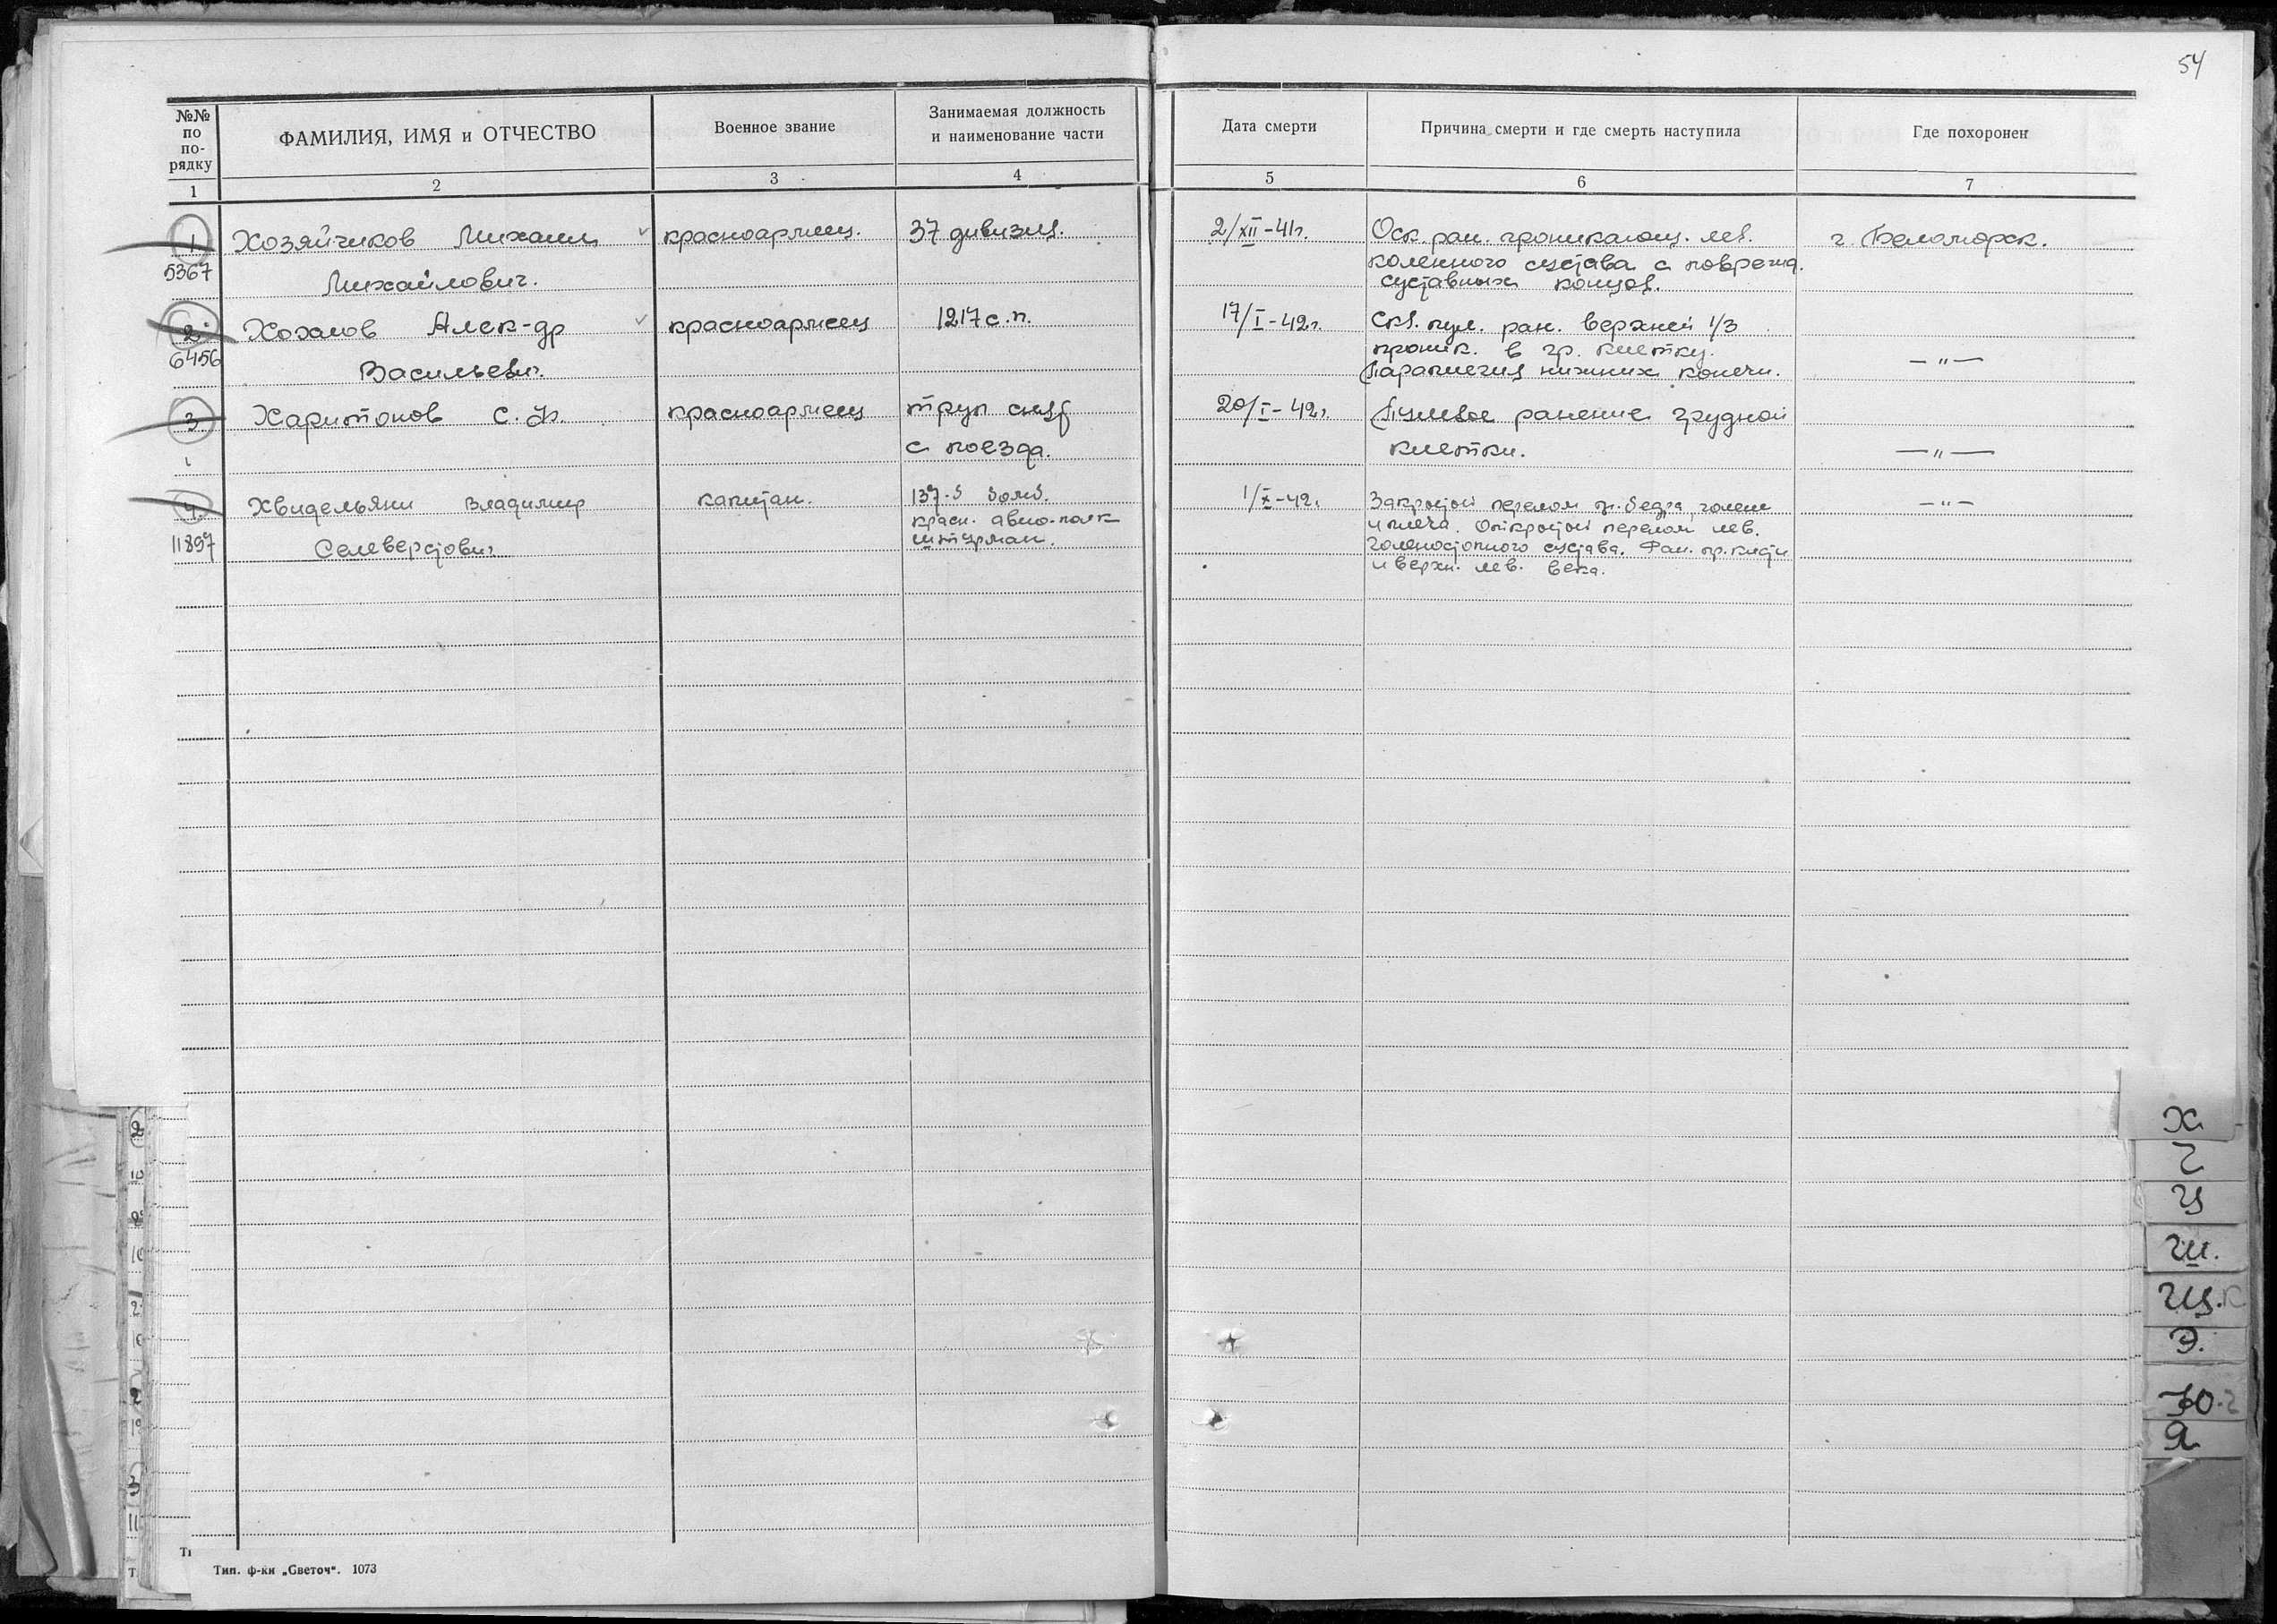 54
№№ по по-рядку
ФАМИЛИЯ, ИМЯ и ОТЧЕСТВО
Военное звание
Занимаемая должность
и наименование части
Дата смерти
Причина смерти и где смерть наступила
Где похоронен
1 2 3 4 5 6 7
1. Хозяйчиков Михаил красноармеец. 37 дивизия. 2/XII-41г. Оск. ран. проникающ. лев. г. Беломорск.
5367 Михайлович. коленного сустава с поврежд.
суставных концов.
2. Хохалов Алек-др красноармеец 1217 с.п. 17/I-42г. Скв. пул. ран. верхней 1/3
6456 Васильевич. проник. в гр. клетку. — " —
Параплегия нижних конечн.
3. Харитонов С. красноармеец труп снят 20/I-42г. Пулевое ранение грудной
с поезда. клетки. — " —
4. Хвидельяни Владимир капитан. 137-й 1/X-42г. Закрытый перелом пр. бедра, голени — " —
красн. авио-полк и плеча. Открытый перелом лев.
11897 Селеверстович штурман. голеностопного сустава. Ран. пр. кисти
и верхн. лев. века.
Х
Ц
Ш.
Щ.
Э.
Ю.
Я
Тип. ф-ки „Светоч“. 1073